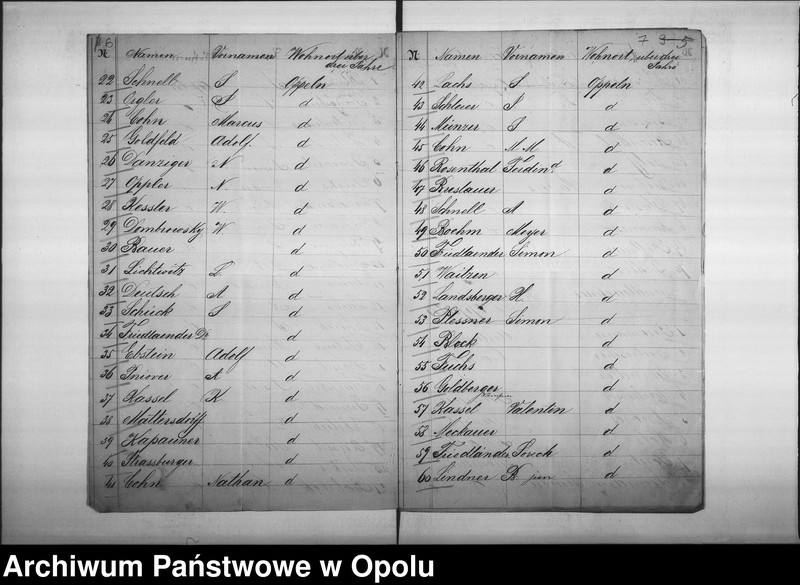 N Namen Vornamen Wohnort über drei Jahre
22 Schnell S Oppeln
23 Orgler S d
24 Cohn Marcus d
25 Goldfeld Adolf. d
26 Danziger N d
27 Oppler N. d
28 Kessler W. d
29 Dombrowsky W d
30 Bauer d
31 Lichtwitz L d
32 Deutsch A d
33 Schück S d
34 Friedlaender Dr d
35 Ebstein Adolf d
36 A d
37 Kassel K d
38 Mattersdorff d
39 d
40 Strassburger d
41 Cohn Nathan d
N Namen Vornamen Wohnort über drei Jahre
42 Sachs S Oppeln
43 Schleier S d
44 Münzer S d
45 Cohn M. M. d
46 Rosenthal Ferdind. d
47 Breslauer d
48 Schnell A d
49 Boehm Meyer d
50 Friedlaender Simon d
51 Waitzen d
52 Landsberger H. d
53 Plessner Simon d
54 Block d
55 Fuchs d
56 Goldberger d
57 Kassel Valentin d
58 Meckauer d
59 Friedländer d
60 Lindner B. jun d
Archiwum Państwowe w Opolu